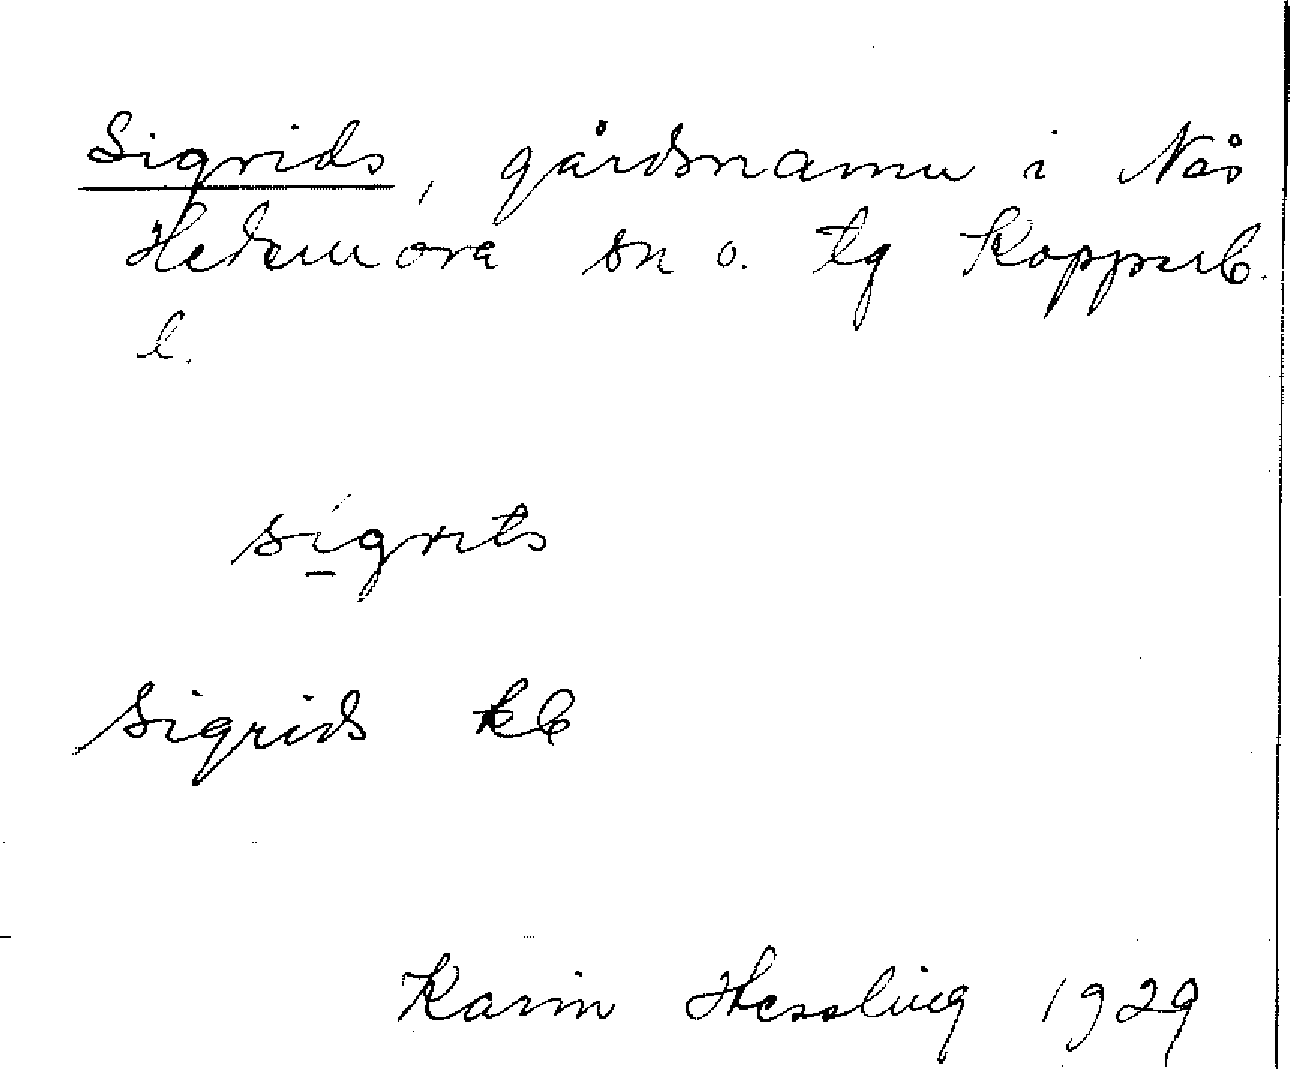 Sigrids, gårdsnamn i Nås
Hedemora sn o. tg Kopparb.
l.
sígrits
Sigrids kb
Karin Hessling 1929